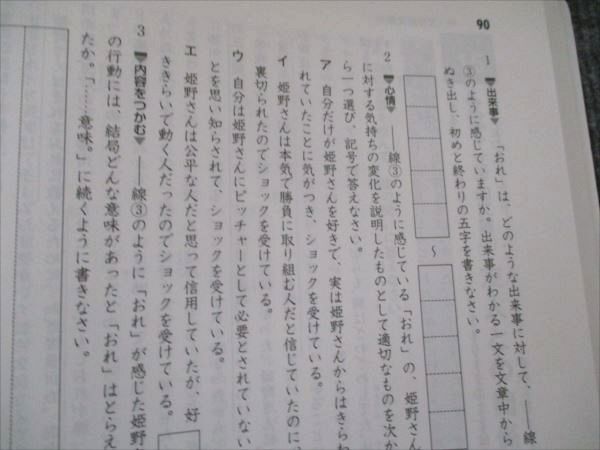 90
1 ▼出来事▼ 「おれ」は、どのような出来事に対して、――線
③のように感じていますか。出来事がわかる一文を文章中から
ぬき出し、初めと終わりの五字を書きなさい。
〜
2 ▼心情▼ ――線③のように感じている「おれ」の、姫野さん
に対する気持ちの変化を説明したものとして適切なものを次か
ら一つ選び、記号で答えなさい。
ア 自分だけが姫野さんを好きで、実は姫野さんからはきらわ
れていたことに気がつき、ショックを受けている。
イ 姫野さんは本気で勝負に取り組む人だと信じていたのに、
裏切られたのでショックを受けている。
ウ 自分は姫野さんにピッチャーとして必要とされていない
とを思い知らされて、ショックを受けている。
エ 姫野さんは公平な人だと思って信用していたが、好
ききらいで動く人だったのでショックを受けている。
3 ▼内容をつかむ▼ ――線③のように「おれ」が感じた姫野
の行動には、結局どんな意味があったと「おれ」はとらえ
たか。「……意味。」に続くように書きなさい。